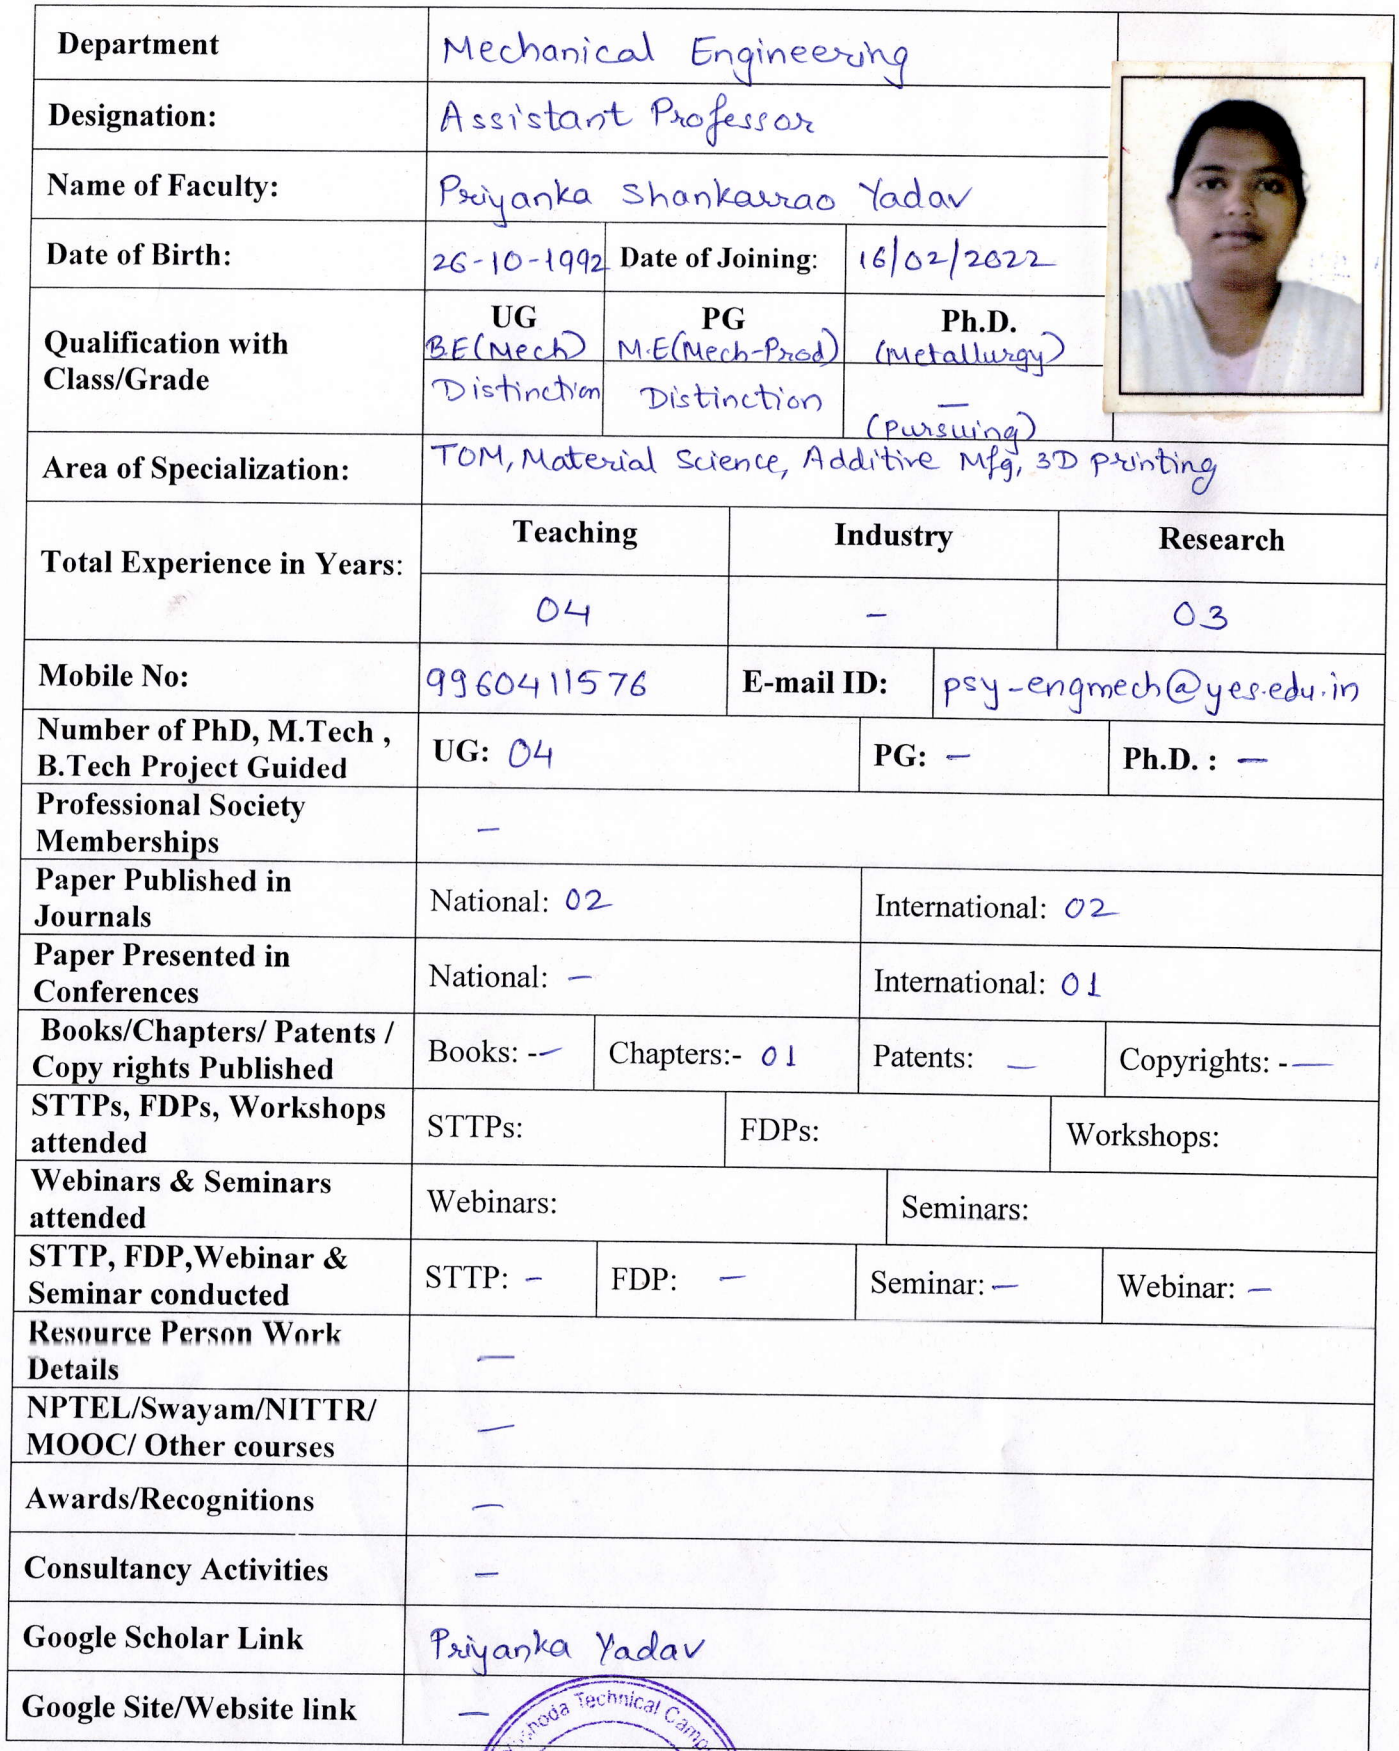 Department Mechanical Engineering
Designation: Assistant Professor
Name of Faculty: Priyanka Shankarrao Yadav
Date of Birth: 26-10-1992 Date of Joining: 16/02/2022
Qualification with Class/Grade
UG PG Ph.D.
B.E(Mech) M.E(Mech-Prod) (Metallurgy)
Distinction Distinction —
(Pursuing)
Area of Specialization: TOM, Material Science, Additive Mfg, 3D printing
Total Experience in Years:
Teaching Industry Research
04 - 03
Mobile No: 9960411576 E-mail ID: psy-engmech@yes.edu.in
Number of PhD, M.Tech ,
B.Tech Project Guided
UG: 04 PG: - Ph.D. : -
Professional Society
Memberships
-
Paper Published in
Journals
National: 02 International: 02
Paper Presented in
Conferences
National: - International: 01
Books/Chapters/ Patents /
Copy rights Published
Books: -- Chapters:- 01 Patents: - Copyrights: --
STTPs, FDPs, Workshops
attended
STTPs: FDPs: Workshops:
Webinars & Seminars
attended
Webinars: Seminars:
STTP, FDP,Webinar &
Seminar conducted
STTP: - FDP: - Seminar: - Webinar: -
Resource Person Work
Details
-
NPTEL/Swayam/NITTR/
MOOC/ Other courses
-
Awards/Recognitions -
Consultancy Activities -
Google Scholar Link Priyanka Yadav
Google Site/Website link -
Technical